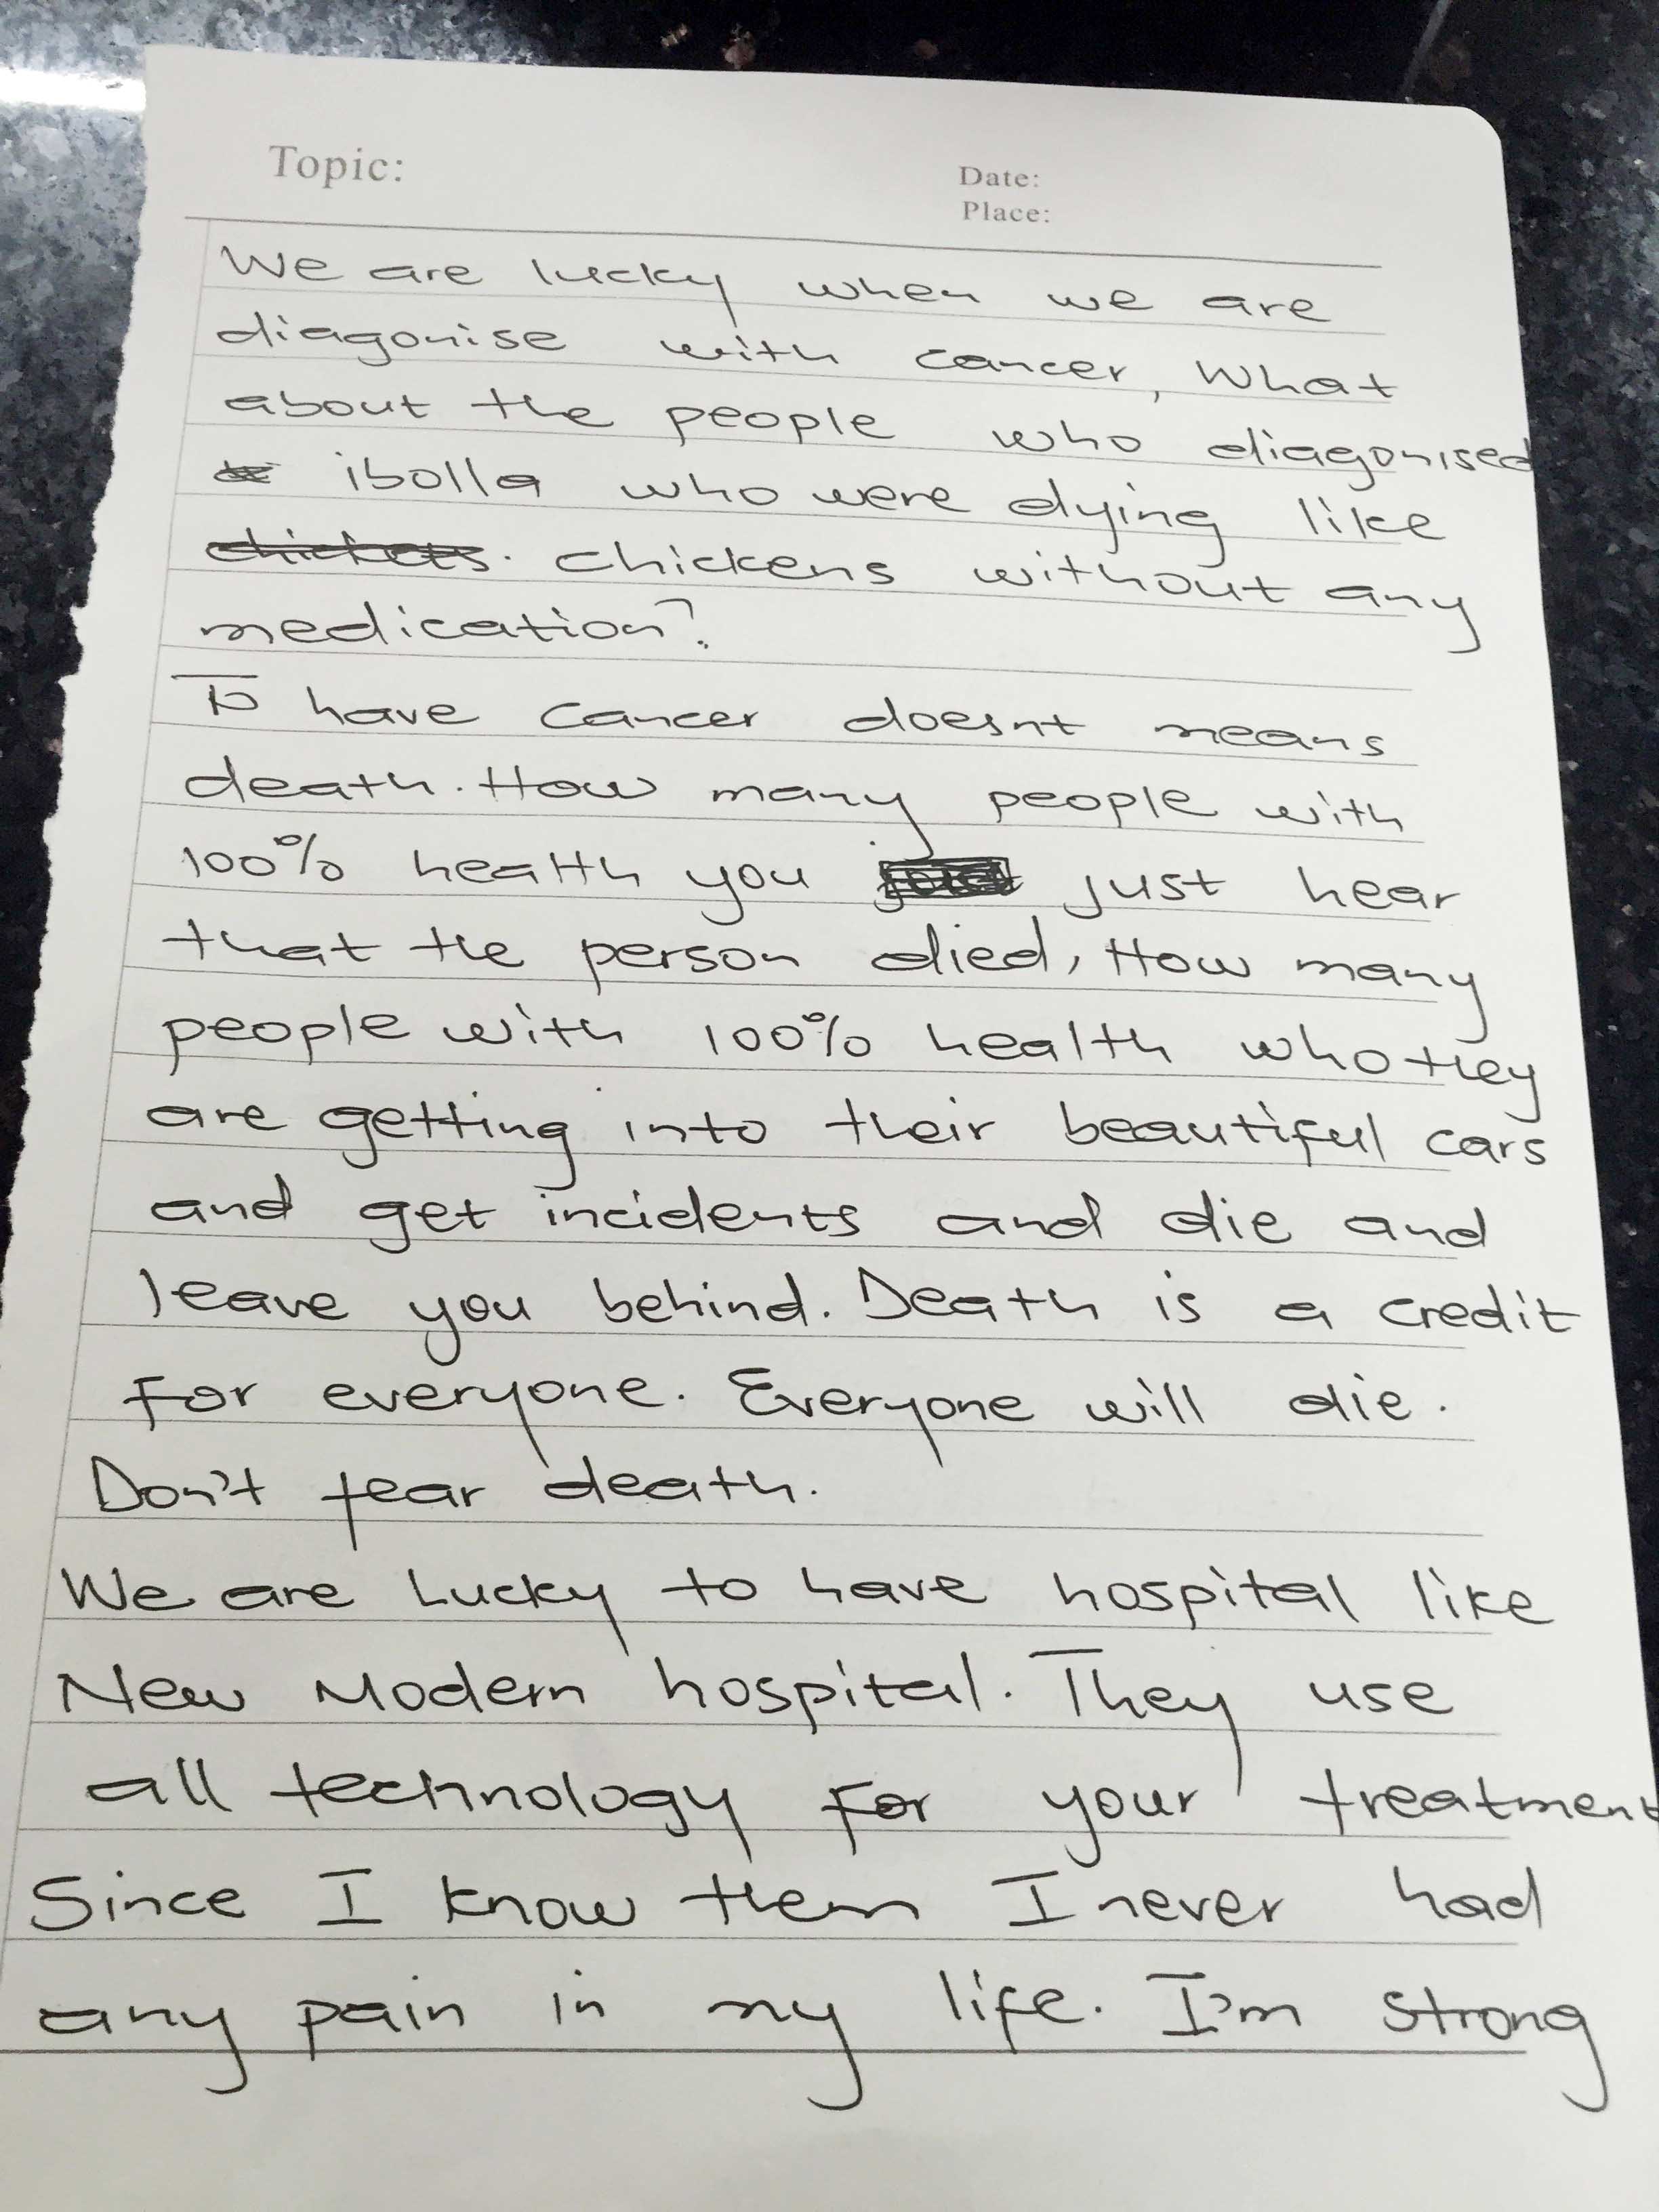 Topic:
Date:
Place:
We are lucky when we are
diagonise with cancer, What
about the people who diagonised
ibolla who were dying like
chickens without any
medication?
To have cancer doesnt means
death. How many people with
100% health you just hear
that the person died, How many
people with 100% health who they
are getting into their beautiful cars
and get incidents and die and
leave you behind. Death is a credit
For everyone. Everyone will die.
Don't fear death.
We are Lucky to have hospital like
New Modern hospital. They use
all technology For your treatment
Since I know them I never had
any pain in my life. I'm strong